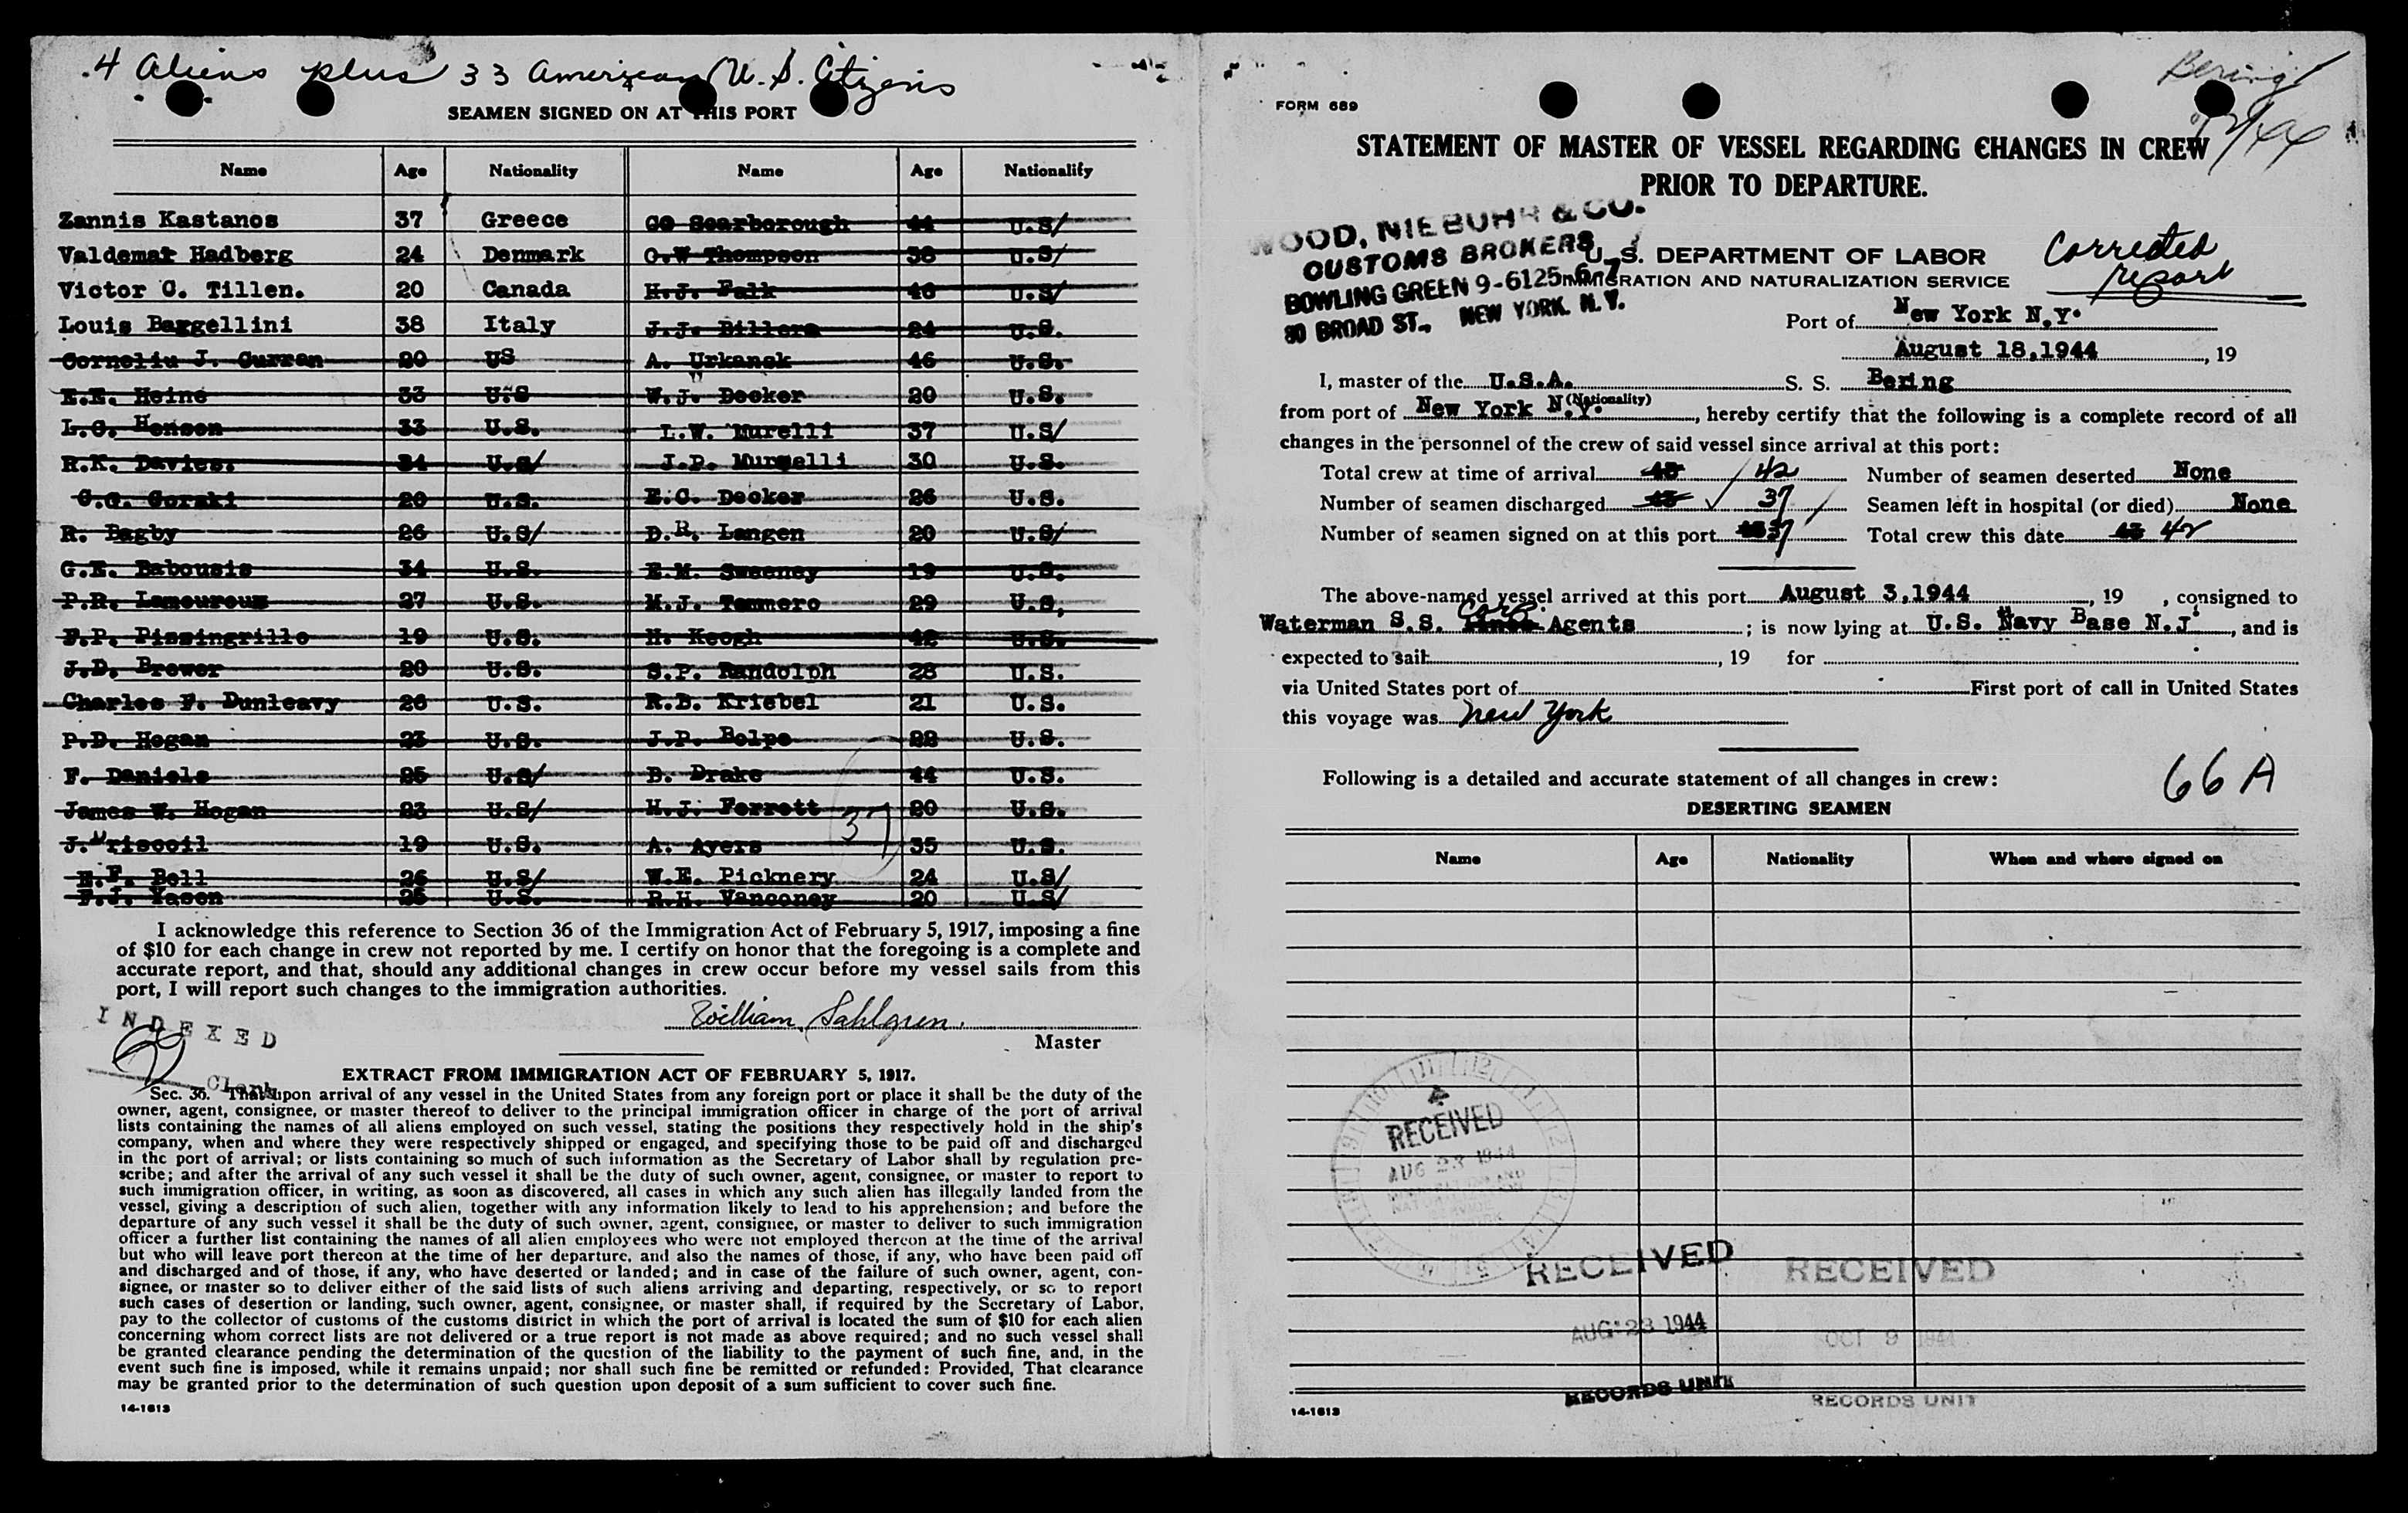 4 Aliens plus 33 American (U.S. Citizens
SEAMEN SIGNED ON AT THIS PORT
Name Age Nationality Name Age Nationality
Zannis Kastanos 37 Greece CO Scarborough 44 U.S/
Valdemar Hadberg 24 Denmark O.W Thompson 38 U.S/
Victor C. Tillen. 20 Canada H.J. Falk 46 U.S/
Louis Baggellini 38 Italy J.J. Billera 24 U.S.
Corneliu J. Curran 20 US A. Urkansk 46 U.S.
E.E. Heine 33 U.S W.J. Decker 20 U.S.
L.C. Henson 33 U.S. L.W. Murelli 37 U.S/
R.K. Davies. 34 U.S/ J.P. Murselli 30 U.S.
C.G. Gorski 20 U.S. E.C. Decker 26 U.S.
R. Bagby 26 U.S/ D.R. Langen 20 U.S/
G.E. Babousis 34 U.S. E.M. Sweeney 19 U.S.
P.R. Lamoureux 27 U.S. M.J. Tammero 29 U.S,
F.P. Pissingrillo 19 U.S. H. Keogh 42 U.S.
J.D. Brewer 20 U.S. S.P. Randolph 28 U.S.
Charles F. Dunleavy 26 U.S. R.B. Kriebel 21 U.S.
P.D. Hogan 23 U.S. J.P. Bolpe 22 U.S.
F. Daniels 25 U.S/ B. Drake 44 U.S.
James W. Hogan 23 U.S/ H.J. Ferrett 20 U.S.
37
J. riscoil 19 U.S. A. Ayers 35 U.S.
E.F. Bell 26 U.S/ W.E. Picknery 24 U.S/
F.J. Yasen 25 U.S. R.H. Vanconey 20 U.S/
I acknowledge this reference to Section 36 of the Immigration Act of February 5, 1917, imposing a fine
of $10 for each change in crew not reported by me. I certify on honor that the foregoing is a complete and
accurate report, and that, should any additional changes in crew occur before my vessel sails from this
port, I will report such changes to the immigration authorities.
William Sahlgren.
Master
INDEXED
Clerk
EXTRACT FROM IMMIGRATION ACT OF FEBRUARY 5, 1917.
Sec. 36. That upon arrival of any vessel in the United States from any foreign port or place it shall be the duty of the
owner, agent, consignee, or master thereof to deliver to the principal immigration officer in charge of the port of arrival
lists containing the names of all aliens employed on such vessel, stating the positions they respectively hold in the ship's
company, when and where they were respectively shipped or engaged, and specifying those to be paid off and discharged
in the port of arrival; or lists containing so much of such information as the Secretary of Labor shall by regulation pre-
scribe; and after the arrival of any such vessel it shall be the duty of such owner, agent, consignee, or master to report to
such immigration officer, in writing, as soon as discovered, all cases in which any such alien has illegally landed from the
vessel, giving a description of such alien, together with any information likely to lead to his apprehension; and before the
departure of any such vessel it shall be the duty of such owner, agent, consignee, or master to deliver to such immigration
officer a further list containing the names of all alien employees who were not employed thereon at the time of the arrival
but who will leave port thereon at the time of her departure, and also the names of those, if any, who have been paid off
and discharged and of those, if any, who have deserted or landed; and in case of the failure of such owner, agent, con-
signee, or master so to deliver either of the said lists of such aliens arriving and departing, respectively, or so to report
such cases of desertion or landing, such owner, agent, consignee, or master shall, if required by the Secretary of Labor,
pay to the collector of customs of the customs district in which the port of arrival is located the sum of $10 for each alien
concerning whom correct lists are not delivered or a true report is not made as above required; and no such vessel shall
be granted clearance pending the determination of the question of the liability to the payment of such fine, and, in the
event such fine is imposed, while it remains unpaid; nor shall such fine be remitted or refunded: Provided, That clearance
may be granted prior to the determination of such question upon deposit of a sum sufficient to cover such fine.
14-1613
Bering
FORM 689
STATEMENT OF MASTER OF VESSEL REGARDING CHANGES IN CREW
PRIOR TO DEPARTURE.
WOOD, NIEBUHR & CO.
CUSTOMS BROKERS
BOWLING GREEN 9-6125-6-7
80 BROAD ST., NEW YORK. N.Y.
U.S. DEPARTMENT OF LABOR
IMMIGRATION AND NATURALIZATION SERVICE
Corrected
report
Port of New York N.Y.
August 18,1944, 19
I, master of the U.S.A. S. S. Bering
(Nationality)
from port of New York N.Y., hereby certify that the following is a complete record of all
changes in the personnel of the crew of said vessel since arrival at this port:
Total crew at time of arrival 43 / 42 Number of seamen deserted None
Number of seamen discharged 43 ✓ 37 / Seamen left in hospital (or died) None
Number of seamen signed on at this port 37 Total crew this date 43 42
The above-named vessel arrived at this port August 3,1944, 19 , consigned to
Waterman S.S. Lines Corp. Agents; is now lying at U.S. Navy Base N.J, and is
expected to sail , 19 for
via United States port of First port of call in United States
this voyage was New York
Following is a detailed and accurate statement of all changes in crew:
66A
DESERTING SEAMEN
Name Age Nationality When and where signed on
RECEIVED
AUG 23 1944
RECEIVED
AUG 23 1944
RECORDS UNIT
RECEIVED
OCT 9 1944
RECORDS UNIT
14-1613